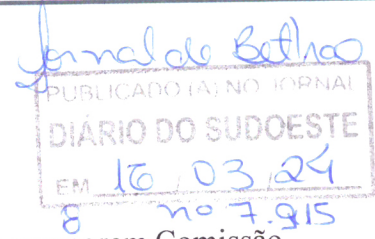 Jornal de Beltrão
PUBLICADO (A) NO JORNAL
DIÁRIO DO SUDOESTE
EM 16 / 03 / 24
nº 7.915
Comissão